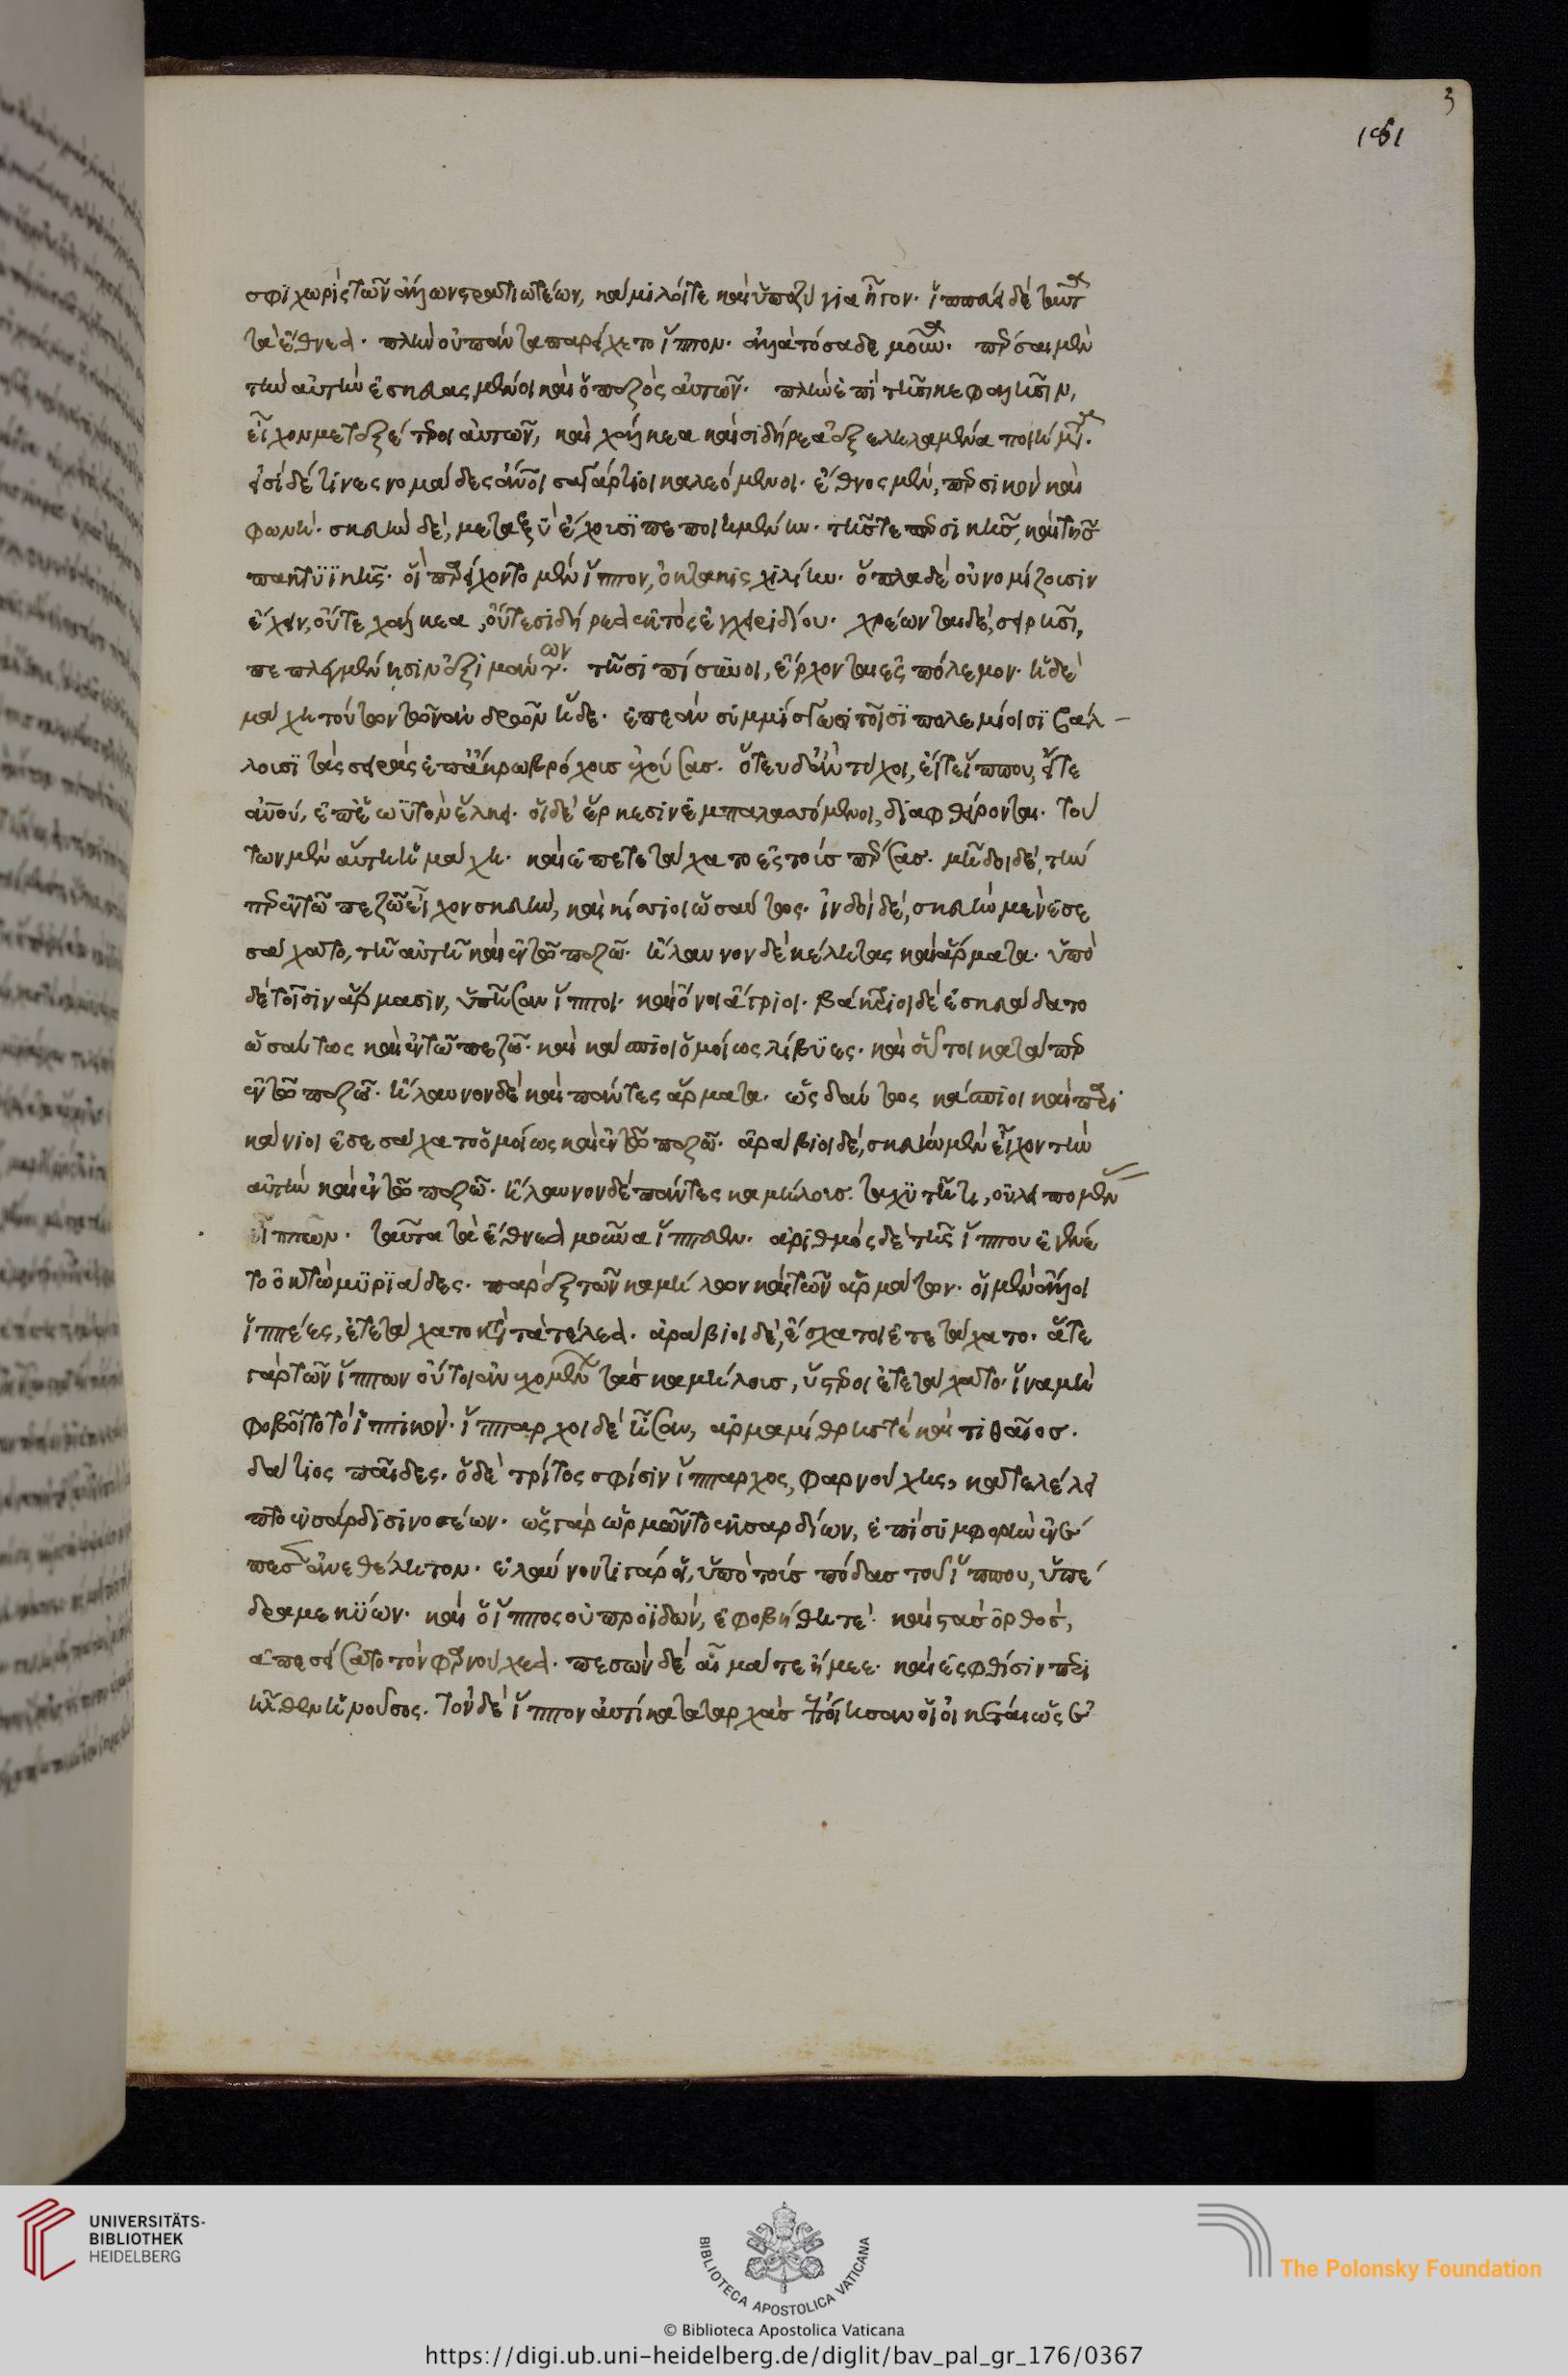 σφϊ χωρὶς τῶν ἄλλων στρατιωτέων, κάμιλοί τε καὶ ὑποζύγια ἦγον. ἱππεύει δὲ ταῦτα
τὰ ἔθνεα. πλὴν οὐ πάντα παρείχετο ἵππον. ἀλλὰ τοσάδε μοῦνα. πέρσαι μὲν
τὴν αὐτὴν ἐσκευασμένοι καὶ ὁ πεζὸς αὐτῶν. πλὴν ἐπὶ τῆσι κεφαλῆσιν,
εἶχον μετεξέτεροι αὐτῶν, καὶ χάλκεα καὶ σιδήρεα ἐξεληλαμένα ποιήματα.
εἰσὶ δέ τινες νομάδες ἄνθρωποι σαγάρτιοι καλεόμενοι. ἔθνος μὲν, περσικὸν καὶ
φωνή. σκευὴ δὲ, μεταξὺ ἔχουσι πεποιημένην. τῆς τε περσικῆς, καὶ τῆς
πακτυϊκῆς. οἳ παρείχοντο μὲν ἵππον, ὀκτακισχιλίην. ὅπλα δὲ οὐ νομίζουσιν
ἔχειν, οὔτε χάλκεα, οὔτε σιδήρεα ἐκτὸς ἐγχειριδίου. χρέωνται δὲ, σειρῆσι,
πεπλεγμένησιν ἐξ ἱμάντων. τῆσι πίσυνοι, ἔρχονται ἐς πόλεμον. ἡ δὲ
μάχη τούτων τῶν ἀνδρῶν ἥδε. ἐπεὰν συμμίσγωσι τοῖσι πολεμίοισι βάλ-
λουσι τὰς σειρὰς ἐπ' ἄκρω βρόχους ἐχούσας. ὅτευ δ' ἂν τύχοι, ἤν τε ἵππου, ἤν τε
ἀνθρώπου, ἐπ' ἑωϋτὸν ἕλκει. οἱ δὲ ἕρκεσιν ἐμπαλασσόμενοι, διαφθείρονται. τού
των μὲν αὕτη ἡ μάχη. καὶ ἐπετετάχατο ἐς τοὺς πέρσας. μῆδοι δὲ, τήν
περ ἐν τῶ πεζῶ εἶχον σκευήν, καὶ κίσσιοι ὡσαύτως. ἰνδοὶ δὲ, σκευῆ μὲν ἐσε
σάχατο, τῆ αὐτῆ καὶ ἐν τῶ πεζῶ. ἤλαυνον δὲ κέλητας καὶ ἅρματα. ὑπὸ
δὲ τοῖσιν ἅρμασιν, ὑπῆσαν ἵπποι. καὶ ὄνοι ἄγριοι. βάκτριοι δὲ ἐσκευάδατο
ὡσαύτως καὶ ἐν τῶ πεζῶ. καὶ κάσπιοι ὁμοίως λίβυες. καὶ οὗτοι κατάπερ
ἐν τῶ πεζῶ. ἤλαυνον δὲ καὶ πάντες ἅρματα. ὡς δαύτως κάσπιοι καὶ παρι
κάνιοι ἐσεσάχατο ὁμοίως καὶ ἐν τῶ πεζῶ. ἀράβιοι δὲ, σκευὴν μὲν εἶχον τὴν
αὐτὴν καὶ ἐν τῶ πεζῶ. ἤλαυνον δὲ πάντες καμήλους. ταχυτῆτι, οὐ λειπομένας
ἵππων. ταῦτα τὰ ἔθνεα μοῦνα ἱππεύει. ἀριθμὸς δὲ τῆς ἵππου ἐγένε
το ὀκτὼ μυριάδες. παρὲξ τῶν καμήλων καὶ τῶν ἁρμάτων. οἱ μὲν ἄλλοι
ἱππέες, ἐτετάχατο κατὰ τέλεα. ἀράβιοι δὲ, ἔσχατοι ἐτετάχατο. ἅτε
γὰρ τῶν ἵππων οὔτοι ἀνεχομένων τὰς καμήλους, ὕστεροι ἐτετάχατο. ἵνα μὴ
φοβοῖτο τὸ ἱππικόν. ἵππαρχοι δὲ ἦσαν, ἁρμαμίθρης τέ καὶ τιθαῖος.
δάτιος παῖδες. ὁ δὲ τρίτος σφίσιν ἵππαρχος, φαρνούχης, κατελέλει
πτο ἐν σάρδισι νοσέων. ὡς γὰρ ὡρμῶντο ἐκ σαρδίων, ἐπὶ συμφορὴν ἐνέ
πεσε ἀνεθέλητον. ἐλαύνοντι γάρ οἱ, ὑπὸ τοὺς πόδας τοῦ ἵππου, ὑπέ
δραμε κύων. καὶ ὁ ἵππος οὐ προϊδὼν, ἐφοβήθη τε. καὶ στὰς ὀρθὸς,
ἀπεσείσατο τὸν φαρνούχεα. πεσὼν δὲ αἷμά τε ἤμεε. καὶ ἐς φθίσιν περι
ῆλθεν ἡ νοῦσος. τὸν δὲ ἵππον αὐτίκα καταρχὰς ἐποίησαν οἱ οἰκέται ὡς ἐ
UNIVERSITÄTS-
BIBLIOTHEK
HEIDELBERG
BIBLIOTECA APOSTOLICA VATICANA
The Polonsky Foundation
© Biblioteca Apostolica Vaticana
https://digi.ub.uni-heidelberg.de/diglit/bav_pal_gr_176/0367